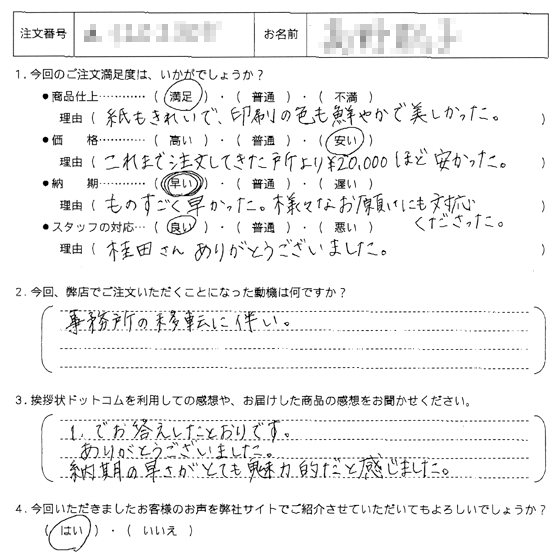 注文番号
お名前
1.今回のご注文満足度は、いかがでしょうか?
●商品仕上…………( 満足 )・( 普通 )・( 不満 )
理由( 紙もきれいで、印刷の色も鮮やかで美しかった。 )
●価　格…………( 高い )・( 普通 )・( 安い )
理由( これまで注文してきた所より¥20,000ほど安かった。 )
●納　期…………( 早い )・( 普通 )・( 遅い )
理由( ものすごく早かった。様々なお願いにも対応
くださった。 )
●スタッフの対応…( 良い )・( 普通 )・( 悪い )
理由( 桂田さん ありがとうございました。 )
2.今回、弊店でご注文いただくことになった動機は何ですか?
事務所の移転に伴い。
3.挨拶状ドットコムを利用しての感想や、お届けした商品の感想をお聞かせください。
1.でお答えしたとおりです。
ありがとうございました。
納期の早さがとても魅力的だと感じました。
4.今回いただきましたお客様のお声を弊社サイトでご紹介させていただいてもよろしいでしょうか?
( はい )・( いいえ )